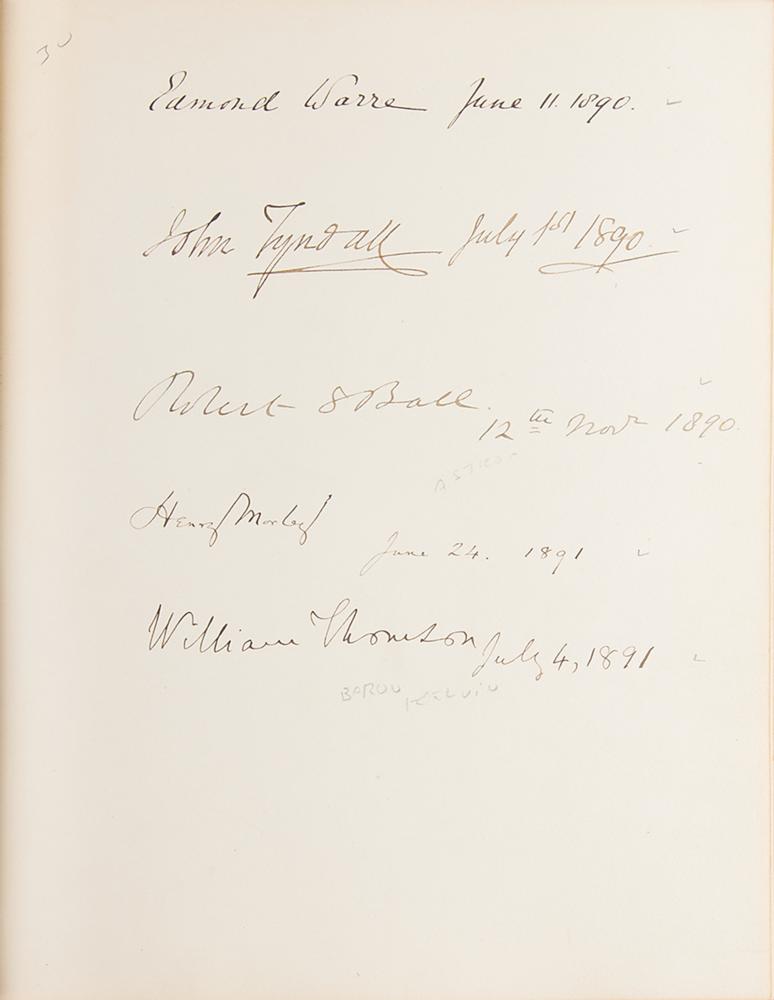 30
Edmond Warre June 11. 1890.
John Tyndall July 1st 1890.
Robert S Ball.
12th Novr 1890.
ASTRO-
Henry Morley
June 24. 1891
William Thomson July 4, 1891
BARON KELVIN